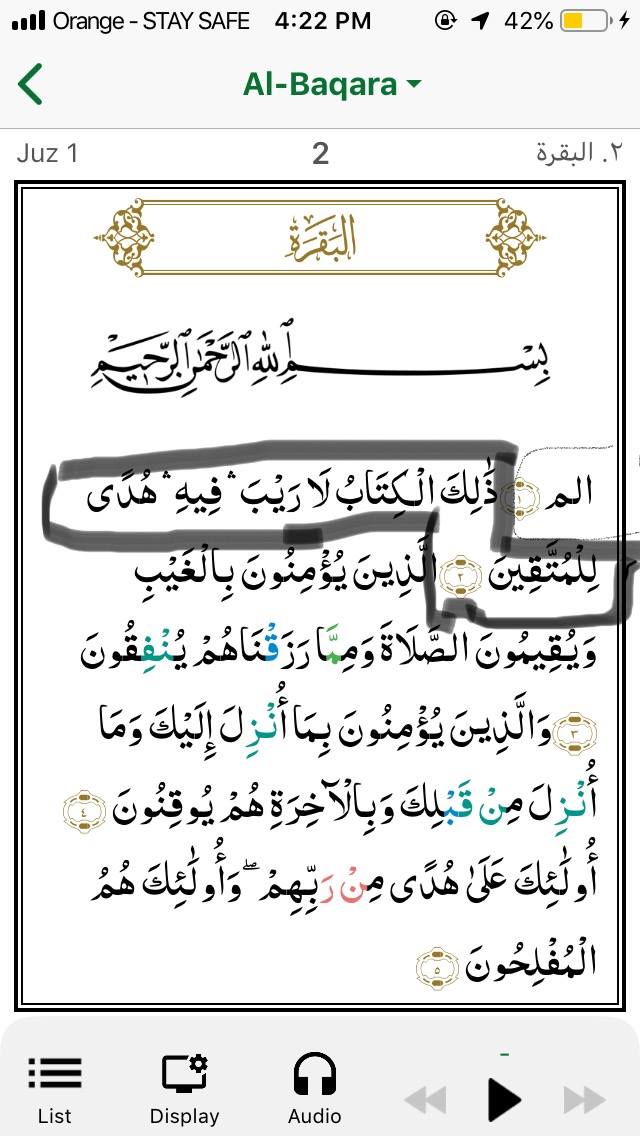 Orange - STAY SAFE 4:22 PM 42%
Al-Baqara
Juz 1 2 ٢. البقرة
البَقَرَةِ
بِسْمِ ٱللَّهِ ٱلرَّحْمَٰنِ ٱلرَّحِيمِ
الم ١ ذَٰلِكَ الْكِتَابُ لَا رَيْبَ ۛ فِيهِ ۛ هُدًى
لِلْمُتَّقِينَ ٢ الَّذِينَ يُؤْمِنُونَ بِالْغَيْبِ
وَيُقِيمُونَ الصَّلَاةَ وَمِمَّا رَزَقْنَاهُمْ يُنْفِقُونَ
٣ وَالَّذِينَ يُؤْمِنُونَ بِمَا أُنْزِلَ إِلَيْكَ وَمَا
أُنْزِلَ مِنْ قَبْلِكَ وَبِالْآخِرَةِ هُمْ يُوقِنُونَ ٤
أُولَٰئِكَ عَلَىٰ هُدًى مِنْ رَبِّهِمْ ۖ وَأُولَٰئِكَ هُمُ
الْمُفْلِحُونَ ٥
List Display Audio